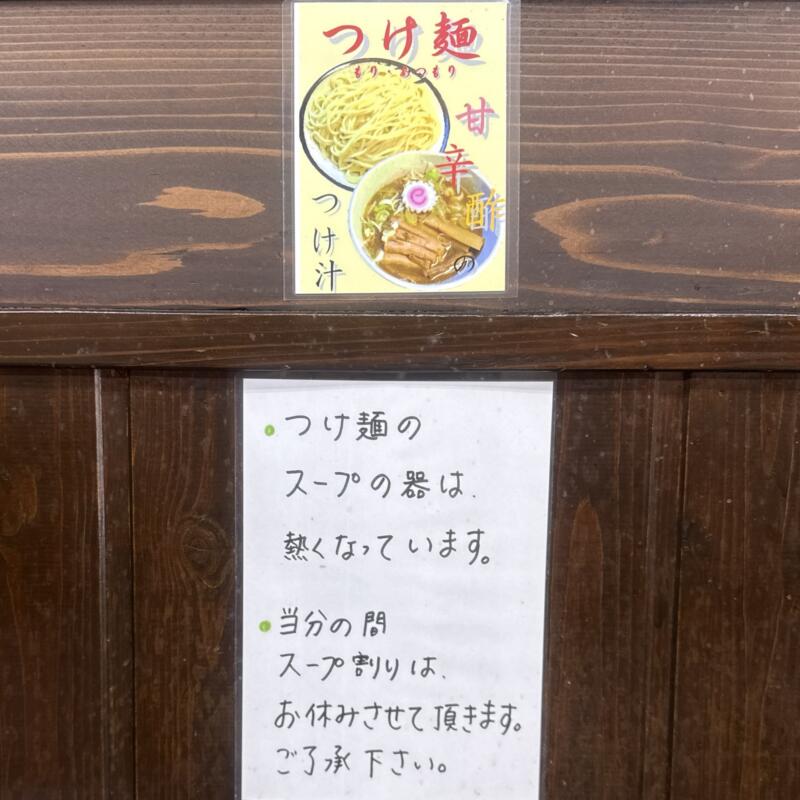 つけ麺
もり・あつもり
甘辛酢の
つけ汁
・つけ麺の
スープの器は、
熱くなっています。
・当分の間
スープ割りは、
お休みさせて頂きます。
ご了承下さい。